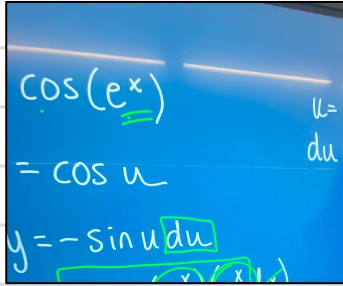 cos(eˣ)
u=
du
= cos u
y = - sin u du